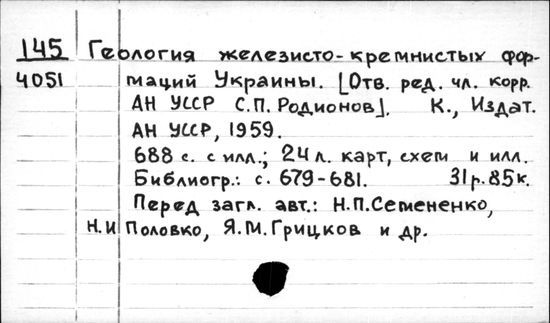 145 Геология железисто-кремнистых фор-
4051 маций Украины. [Отв. ред. чл. корр.
АН УССР С.П. Родионов]. К., Издат.
АН УССР, 1959.
688 с. с илл.; 24 л. карт, схем и илл.
Библиогр.: с. 679-681. 31р.85к.
Перед загл. авт.: Н.П.Семененко,
Н.И Половко, Я.М.Грицков и др.